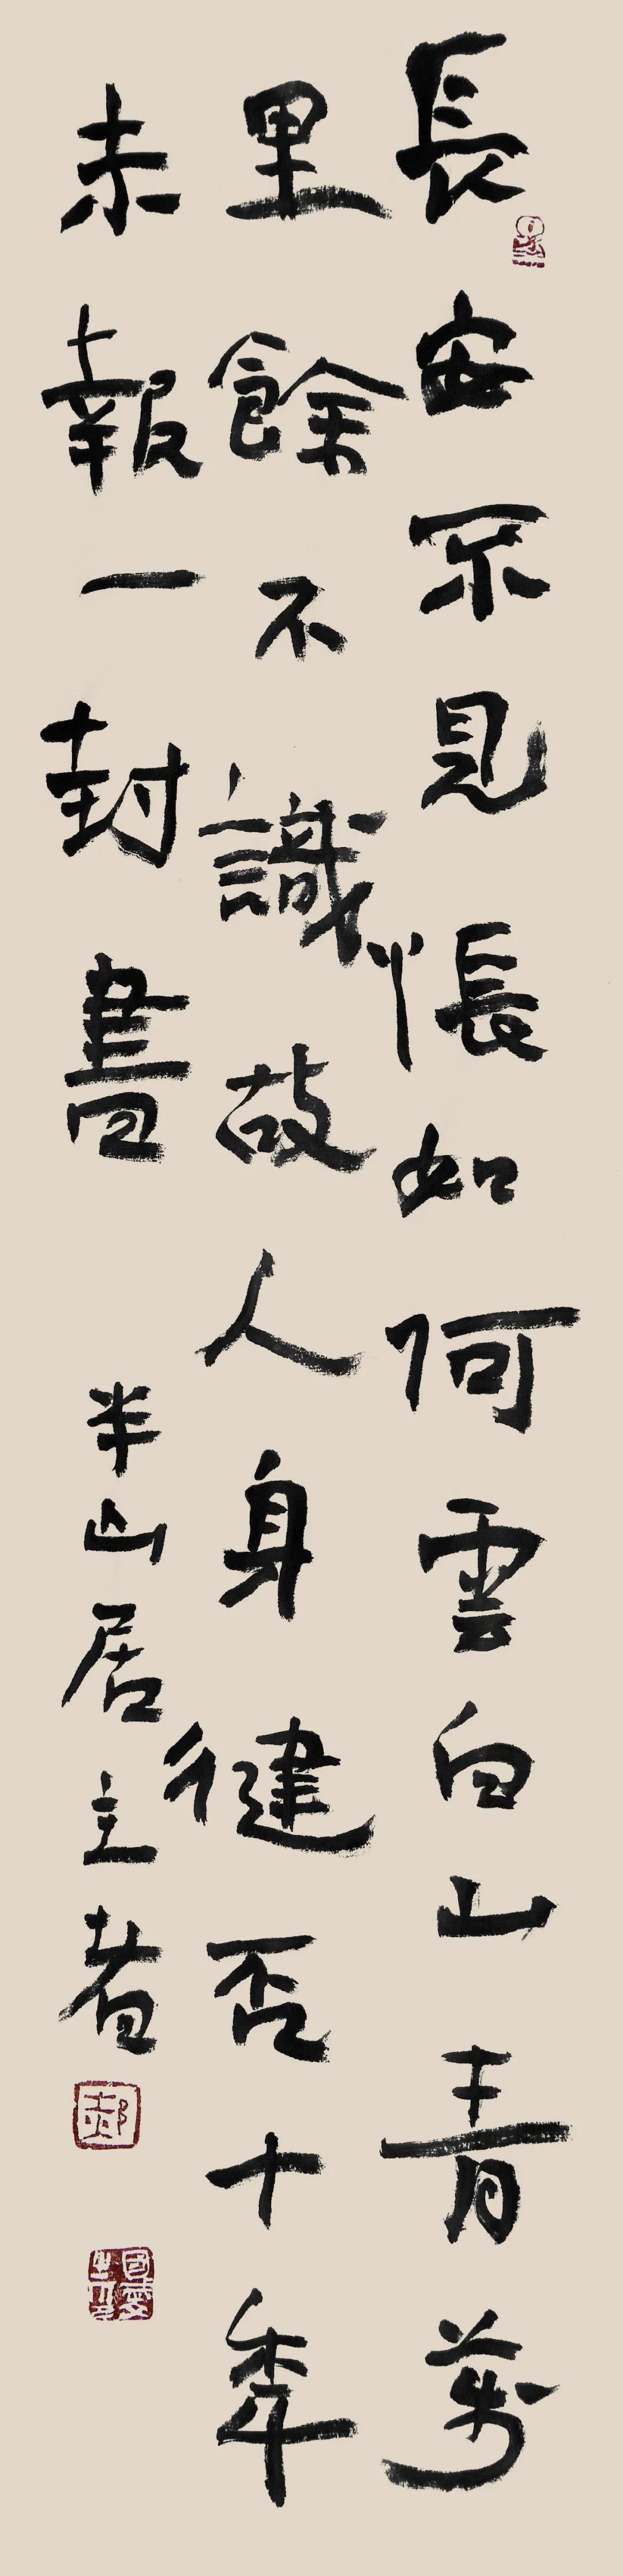 長安不見悵如何雲白山青萬
里餘不識故人身健否十年
未報一封書
半山居主者